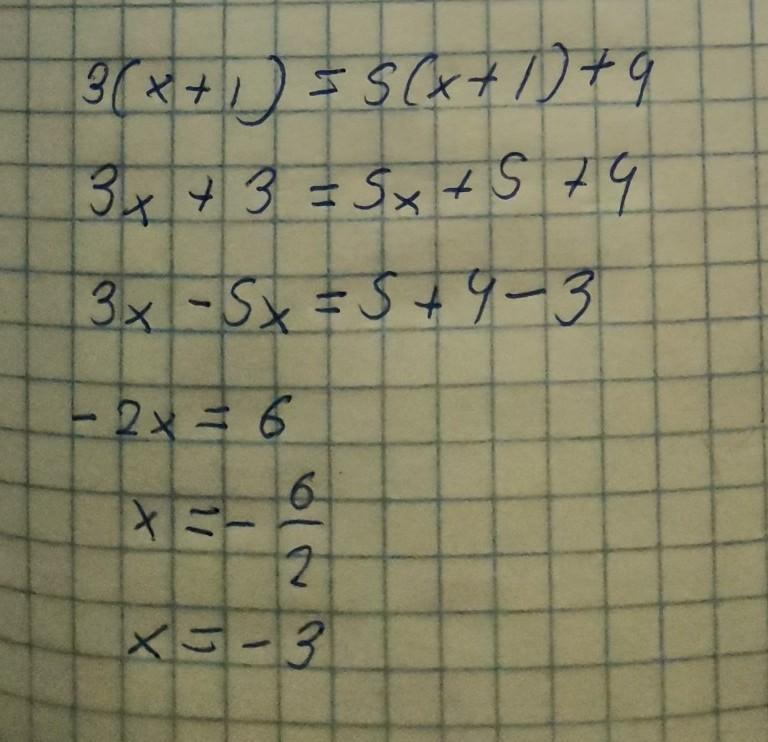 3(x+1) = 5(x+1)+4
3x + 3 = 5x + 5 + 4
3x - 5x = 5 + 4 - 3
- 2x = 6
x = - 6/2
x = - 3